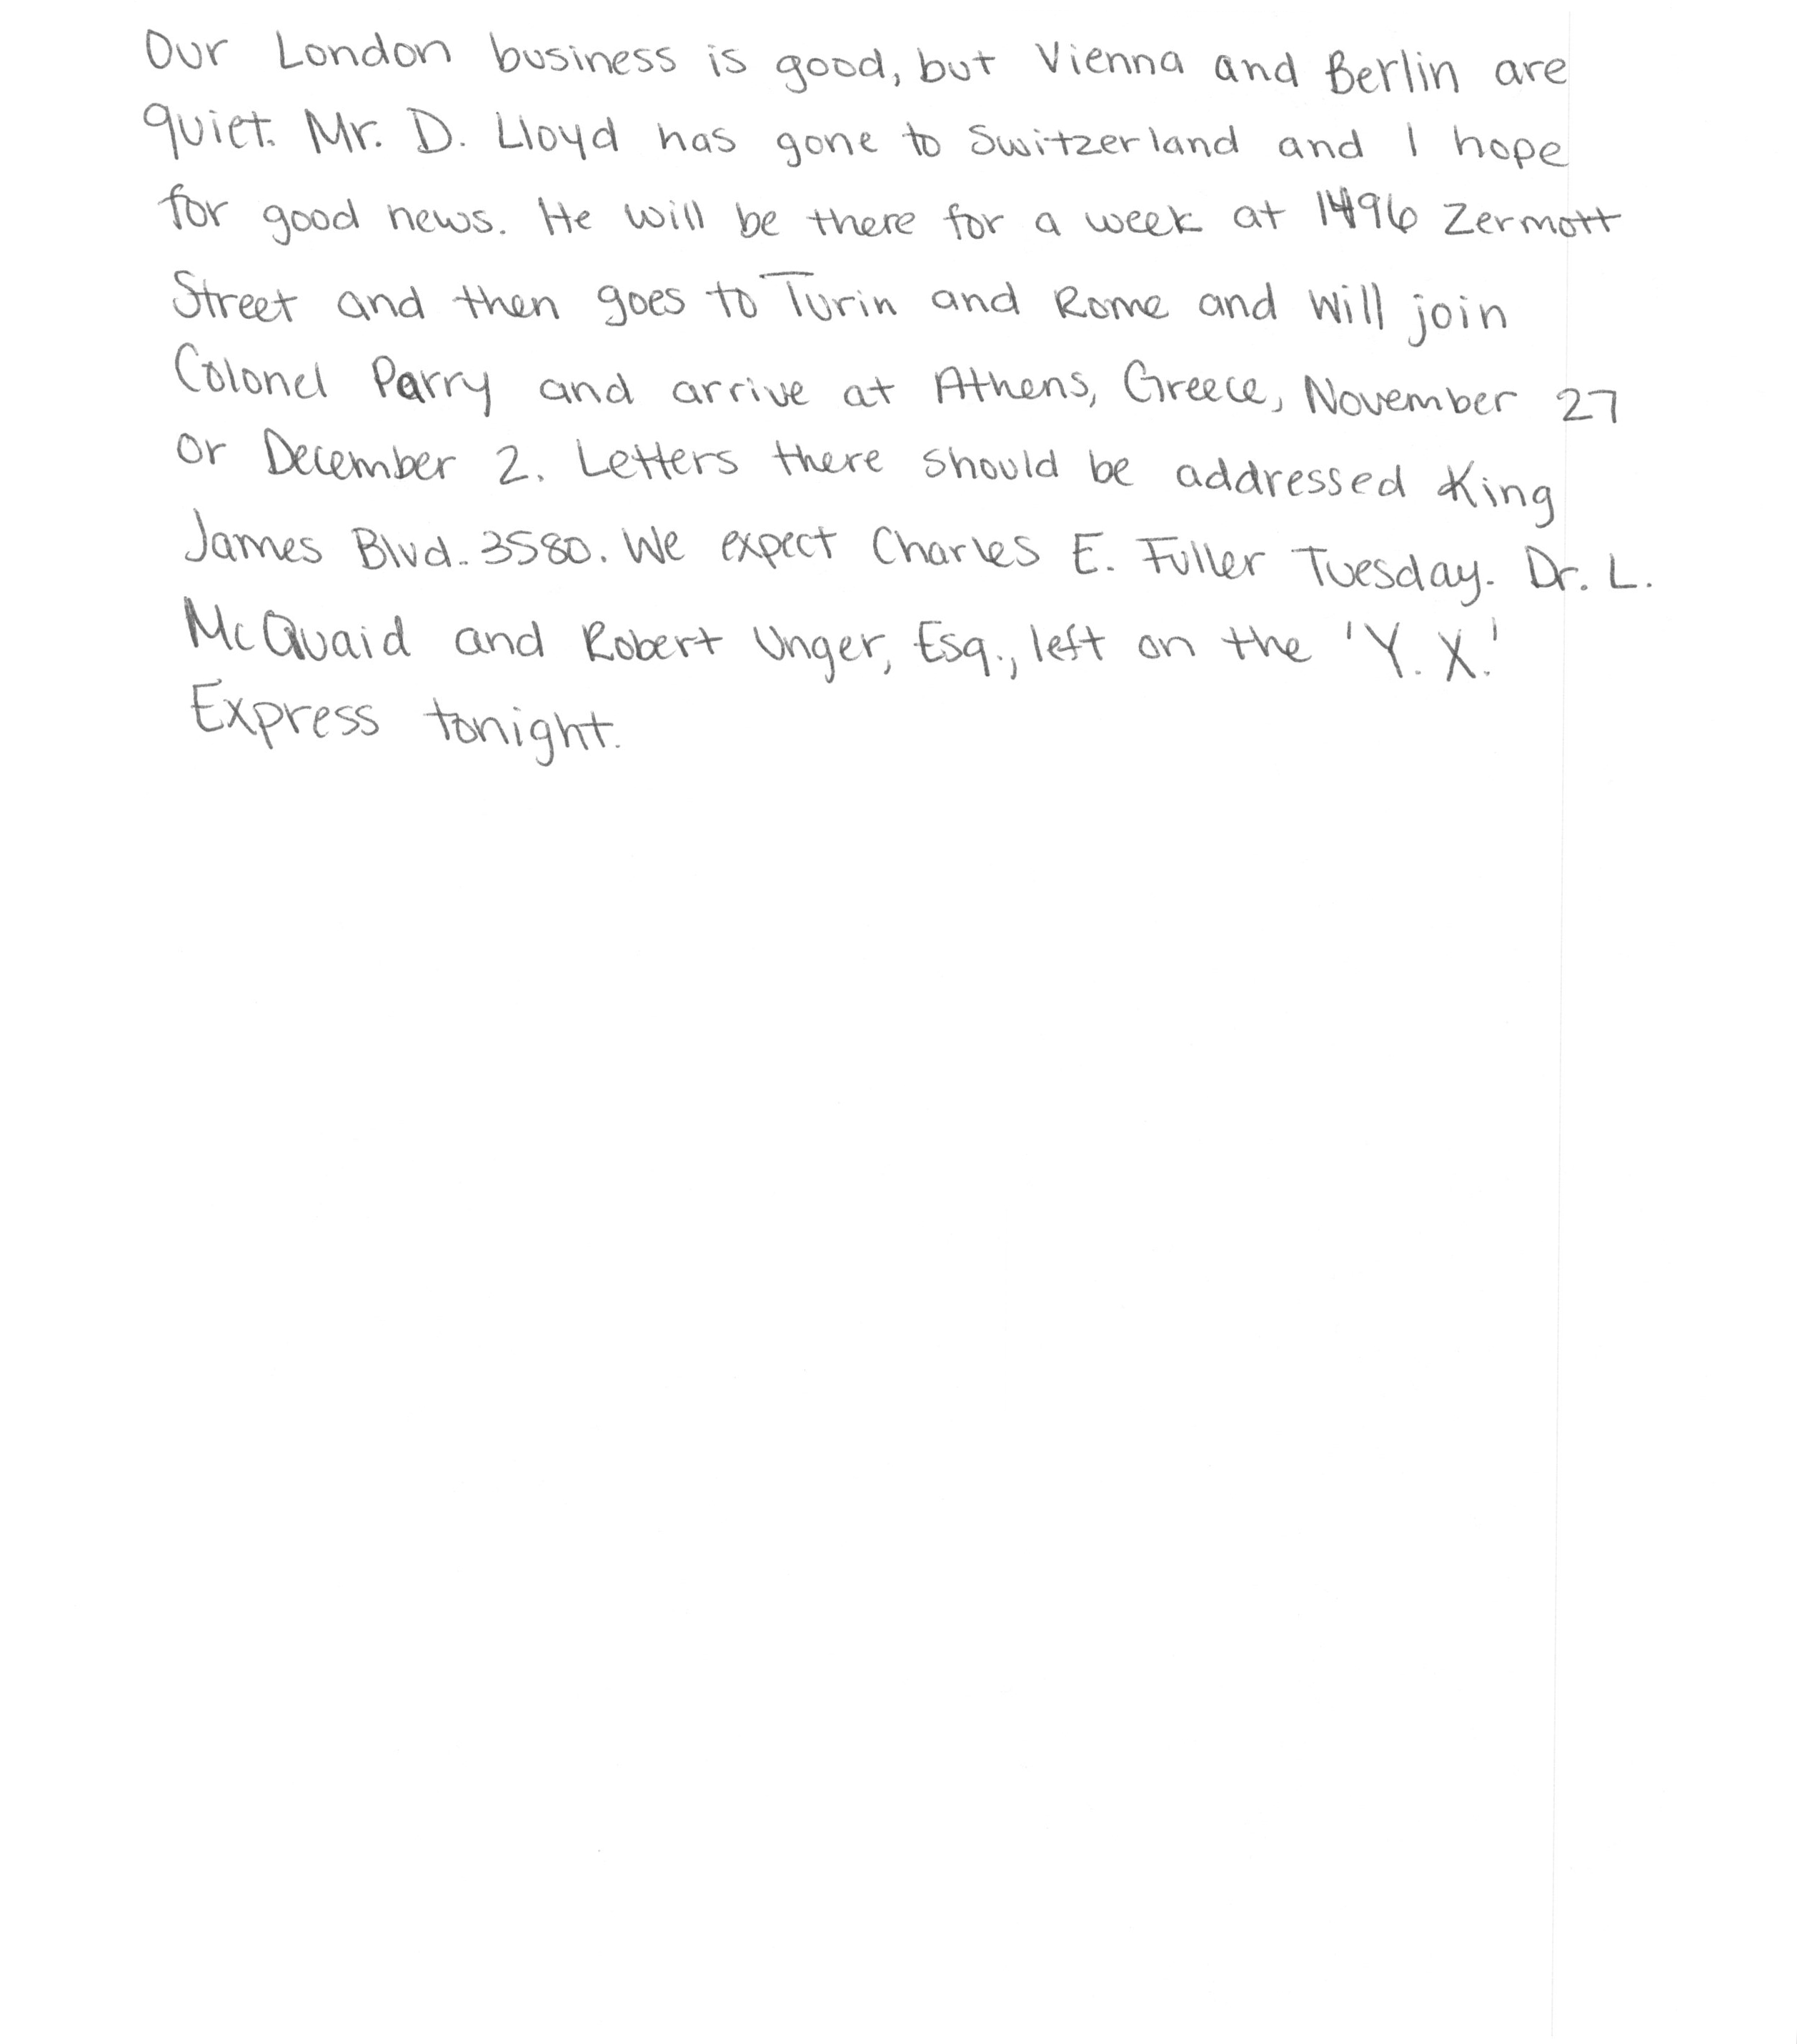 Our London business is good, but Vienna and Berlin are
quiet. Mr. D. Lloyd has gone to Switzerland and I hope
for good news. He will be there for a week at 1496 Zermott
Street and then goes to Turin and Rome and will join
Colonel Parry and arrive at Athens, Greece, November 27
or December 2. Letters there should be addressed King
James Blvd. 3580. We expect Charles E. Fuller Tuesday. Dr. L.
McQuaid and Robert Unger, Esq., left on the 'Y. X.'
Express tonight.